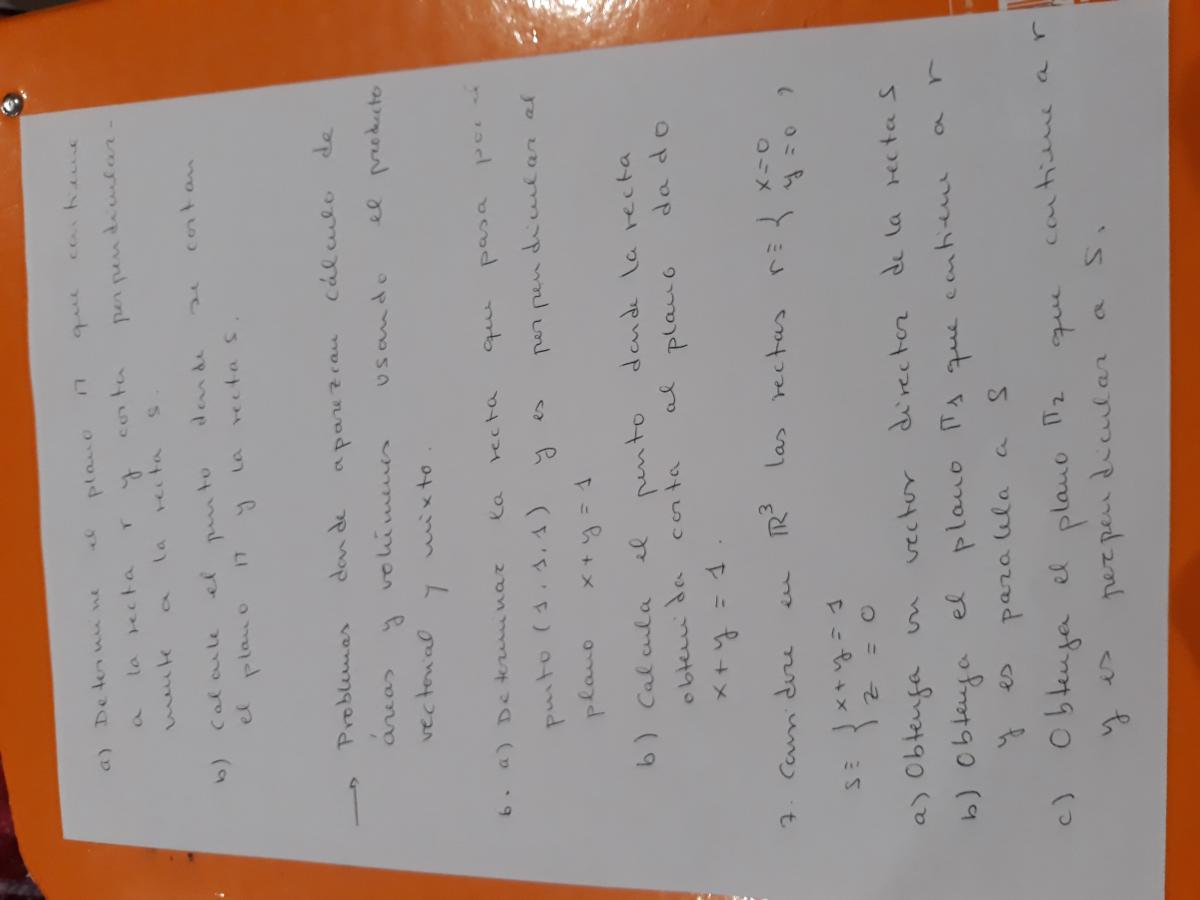 a) Determine el plano π que contiene
a la recta r y corta perpendicular-
mente a la recta s.
b) Calcule el punto donde se cortan
el plano π y la recta s.
→ Problemas donde aparezcan cálculo de
áreas y volúmenes usando el producto
vectorial y mixto.
6. a) Determinar la recta que pasa por el
punto (1,1,1) y es perpendicular al
plano x+y=1
b) Calcula el punto donde la recta
obtenida corta al plano dado
x+y=1.
7. Considere en ℝ³ las rectas r≡ { x=0
y=0 ,
s≡ { x+y=1
z=0
a) Obtenga un vector director de la recta s
b) Obtenga el plano π1 que contiene a r
y es paralela a s
c) Obtenga el plano π2 que contiene a r
y es perpendicular a s.